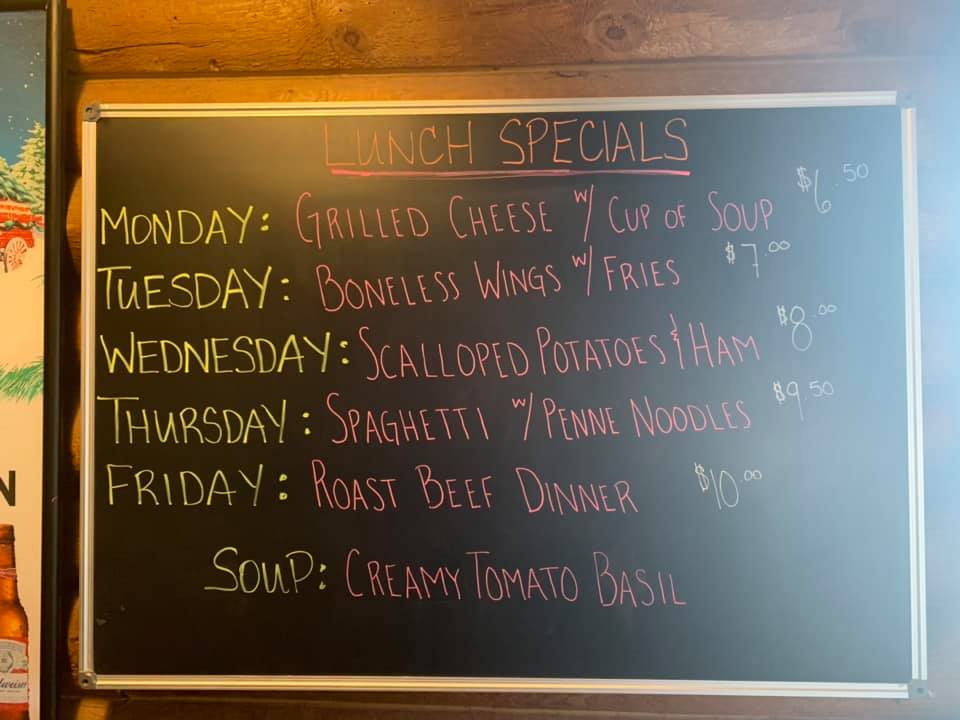 LUNCH SPECIALS
MONDAY: GRILLED CHEESE W/ CUP OF SOUP $6.50
TUESDAY: BONELESS WINGS W/ FRIES $7.00
WEDNESDAY: SCALLOPED POTATOES & HAM $8.00
THURSDAY: SPAGHETTI W/ PENNE NOODLES $9.50
FRIDAY: ROAST BEEF DINNER $10.00
SOUP: CREAMY TOMATO BASIL
N